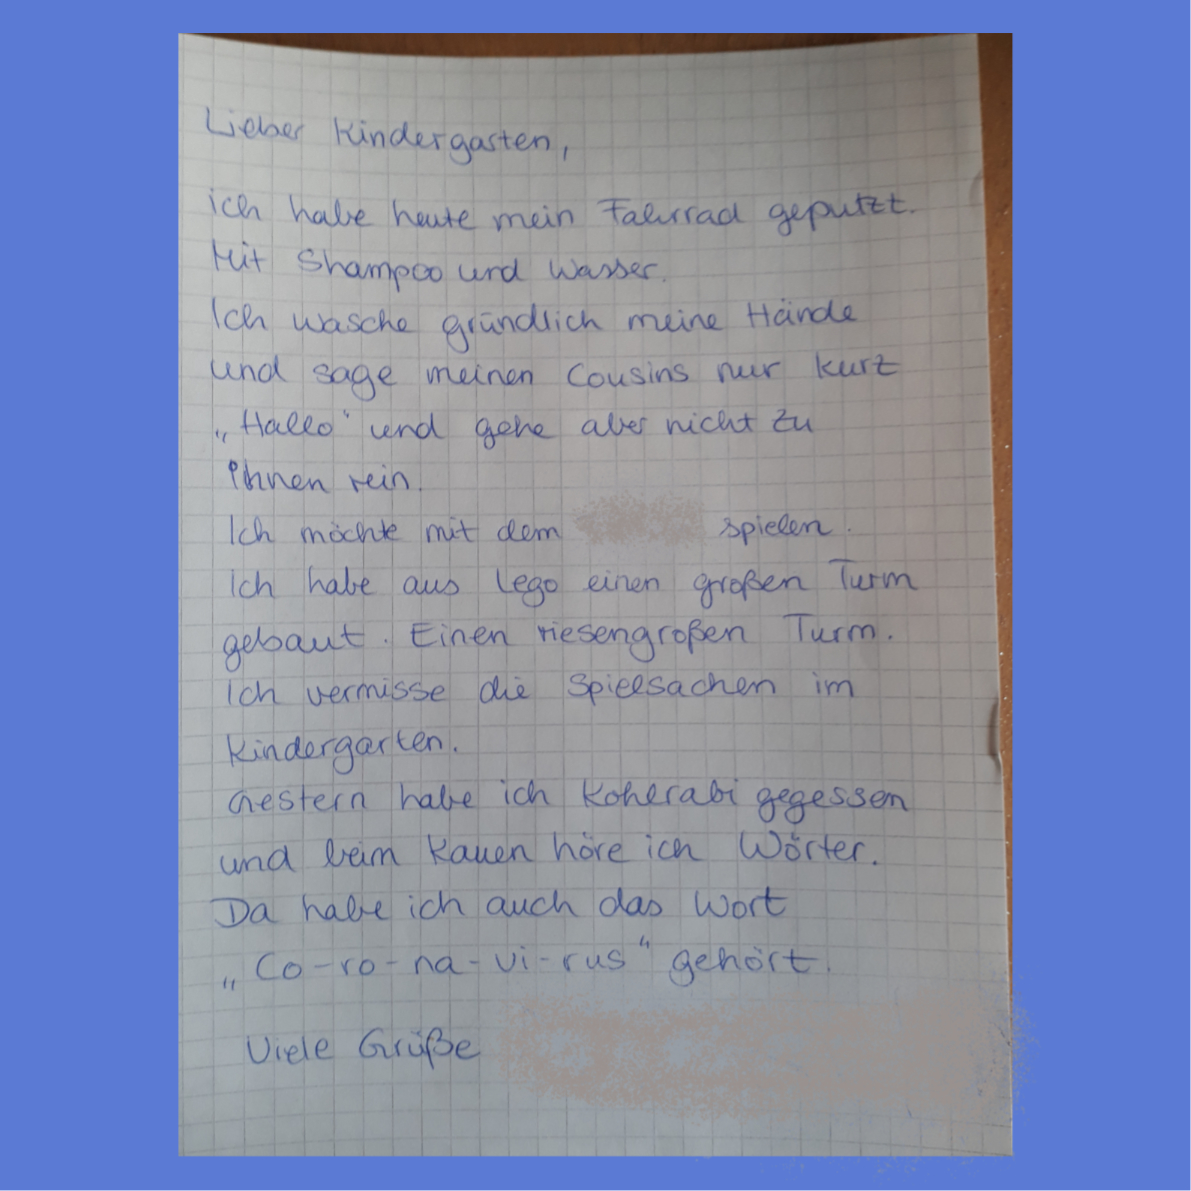 Lieber Kindergarten,
ich habe heute mein Fahrrad geputzt.
Mit Shampoo und Wasser.
Ich wasche gründlich meine Hände
und sage meinen Cousins nur kurz
„Hallo" und gehe aber nicht zu
ihnen rein.
Ich möchte mit dem spielen.
Ich habe aus Lego einen großen Turm
gebaut. Einen riesengroßen Turm.
Ich vermisse die Spielsachen im
Kindergarten.
Gestern habe ich Kohlrabi gegessen
und beim Kauen höre ich Wörter.
Da habe ich auch das Wort
„Co-ro-na-vi-rus" gehört.
Viele Grüße